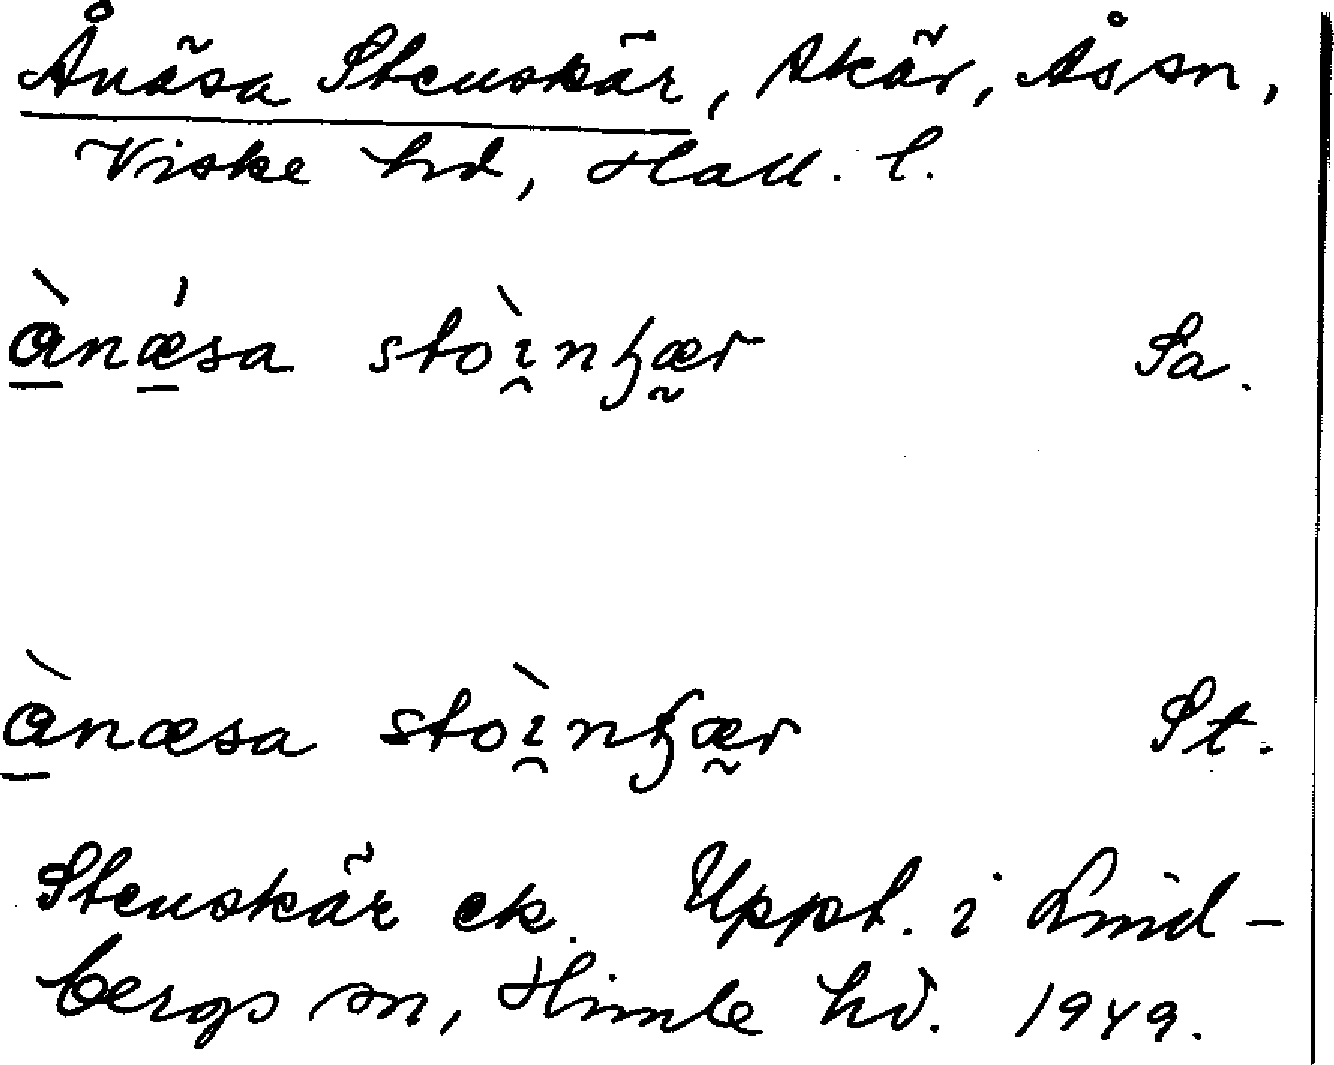 Ånäsa Stenskär, skär, Ås sn,
Viske hd, Hall. l.
ànǽsa stòi̯nꜧær Sa.
ànæsa stòi̯nꜧær St.
Stenskär ek. Uppt. i Lind-
bergs sn, Himle hd. 1949.